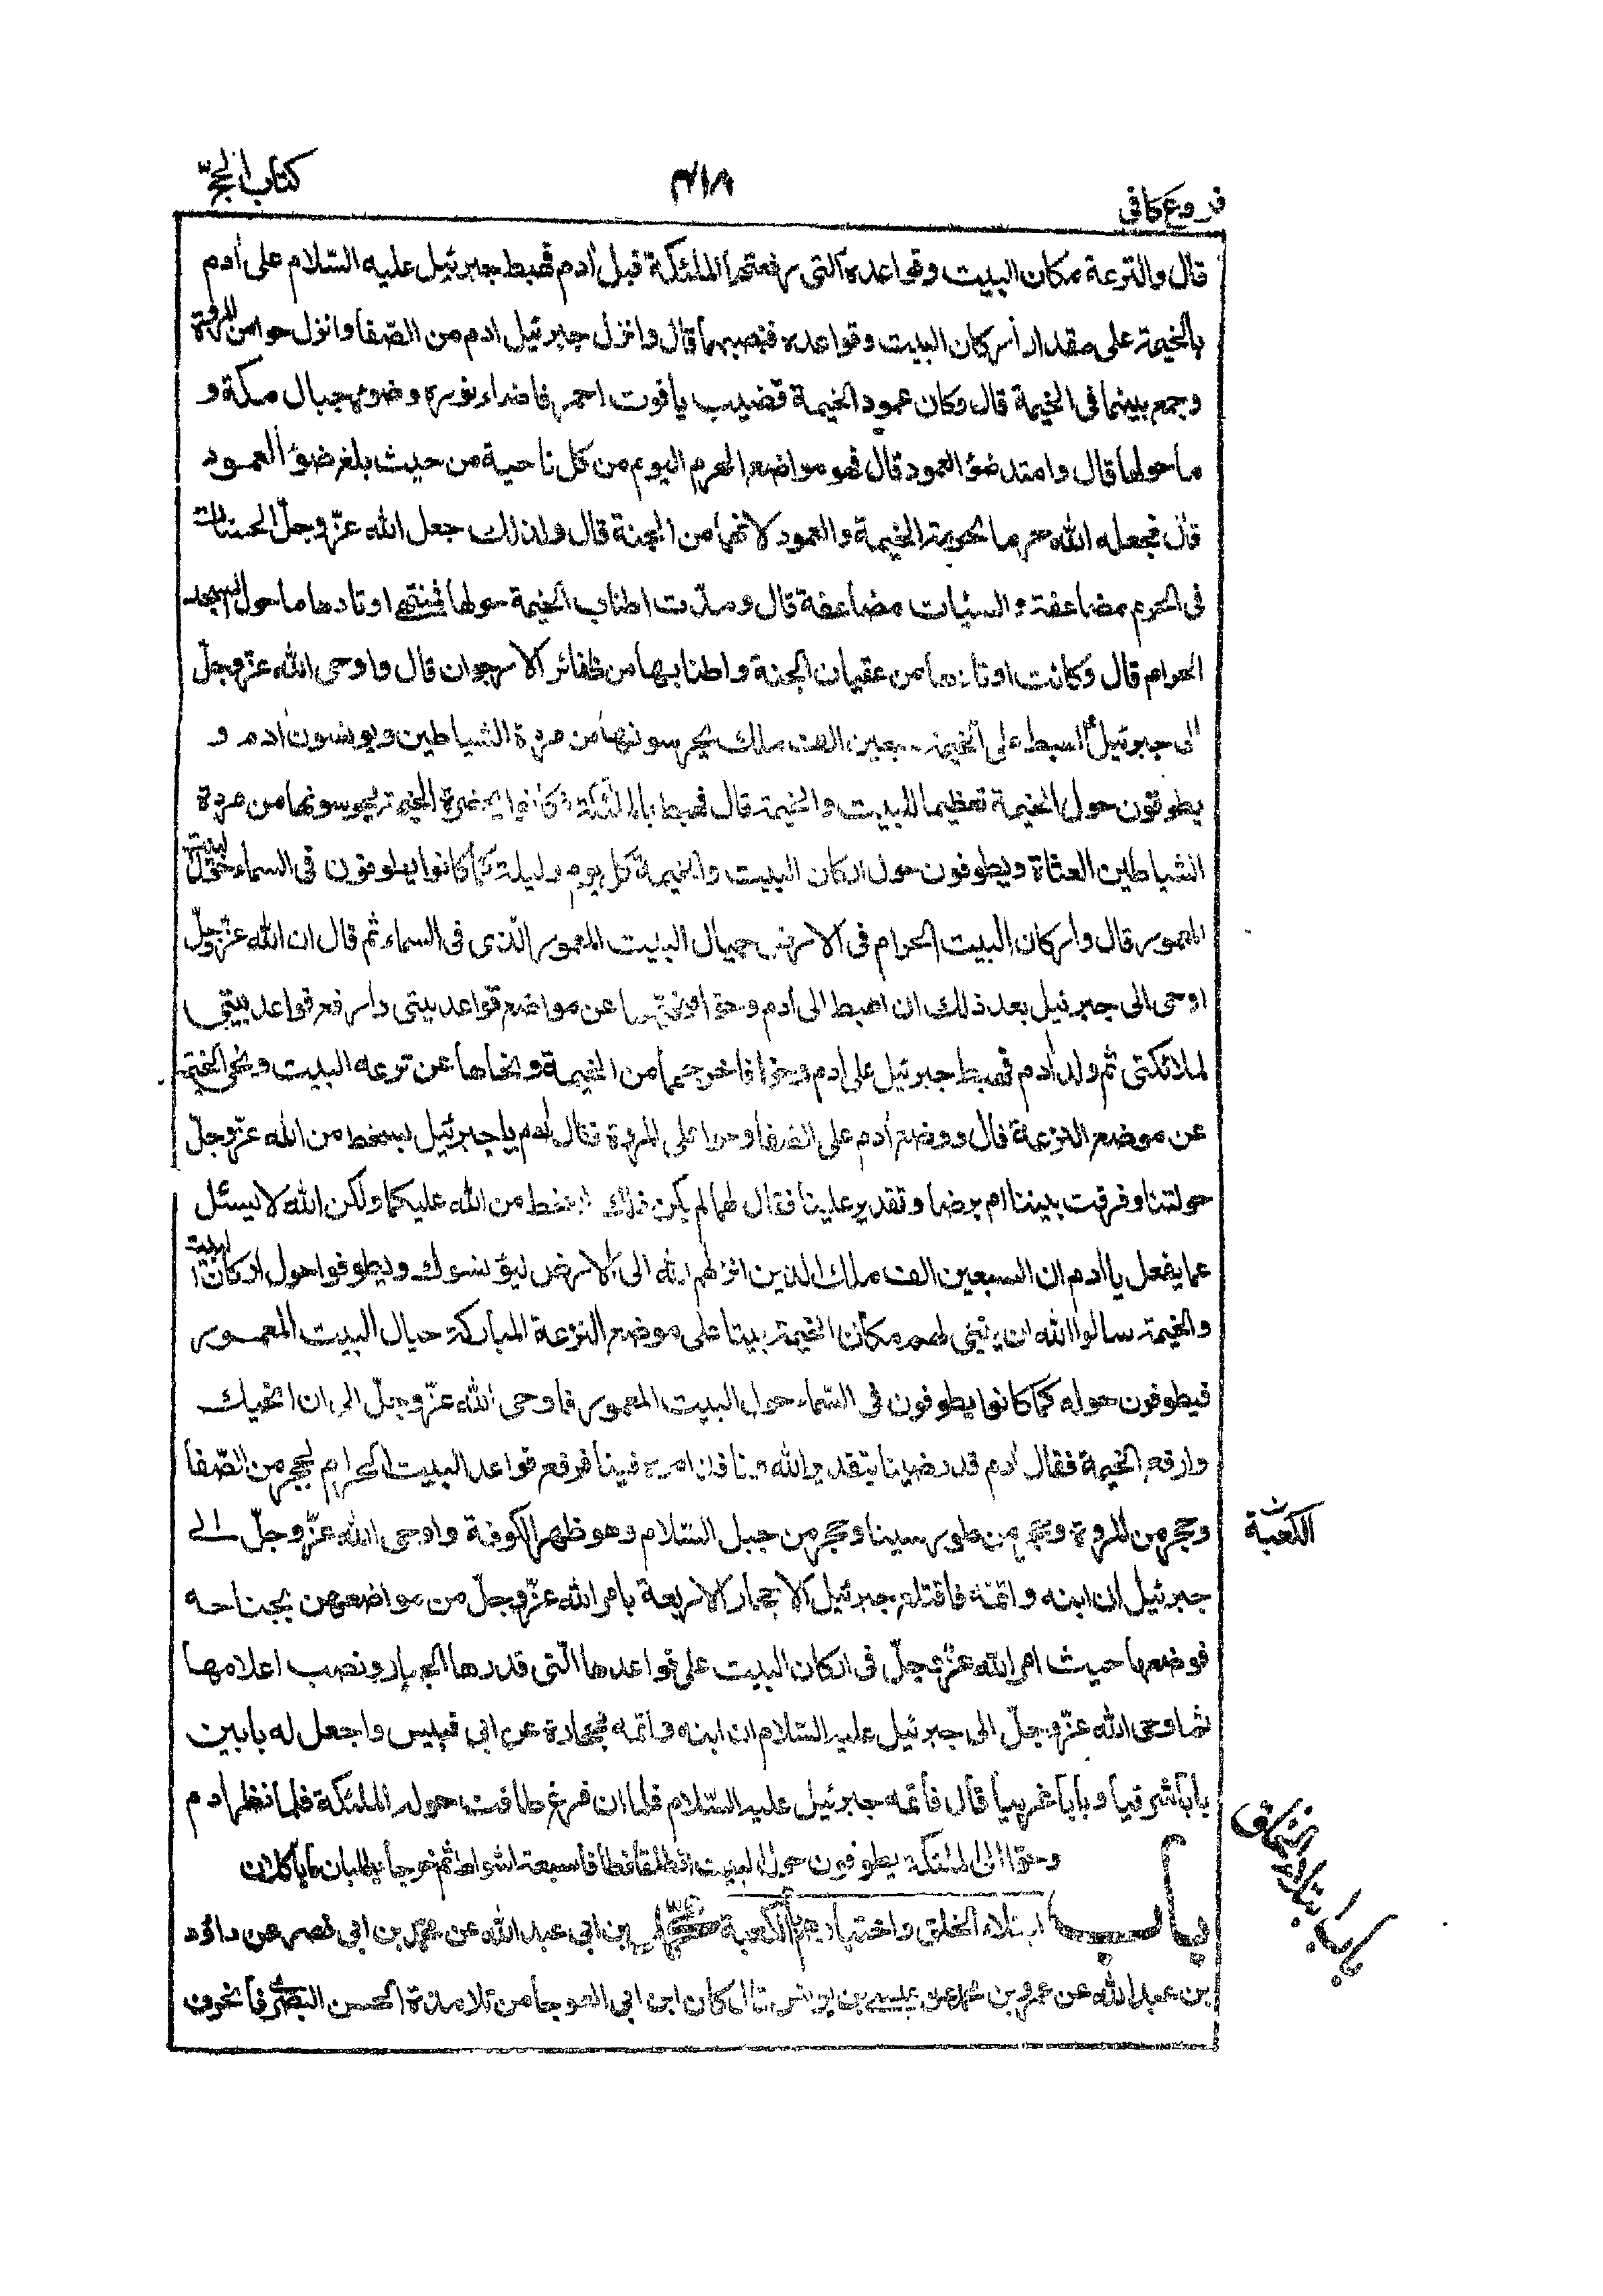 فروع كافى
۲۱۸
كتاب الحجّ
قال والترعة مكان البيت وقواعده التى رفعتها الملئكة قبل ادم فهبط جبرئيل عليه السّلام على ادم
بالخيمة على مقدار أركان البيت وقواعده فنصبها قال وانزل جبرئيل ادم من الصّفا وانزل حوا من المروة
وجمع بينهما فى الخيمة قال وكان عمود الخيمة قضيب ياقوت احمر فاضاء نوره وضوءه جبال مكة و
ما حولها قال وامتد ضوء العمود قال فهو مواضع الحرم اليوم من كل ناحية من حيث بلغ ضوء العمود
قال فجعله الله حرما لحرمة الخيمة والعمود لانهما من الجنة قال ولذلك جعل الله عزّوجلّ الحسنات
فى الحرم مضاعفة والسيئات مضاعفة قال ومدّت اطناب الخيمة حولها فمنتهى اوتادها ما حول المسجد
الحرام قال وكانت اوتادها من عقيان الجنة واطنابها من ظفائر الارجوان قال واوحى الله عزّوجلّ
الى جبرئيل اهبط على الخيمة سبعين الف ملك يحرسونها من مردة الشياطين ويونسون ادم و
يطوفون حول الخيمة تعظيما للبيت والخيمة قال فهبط بالملئكة فكانوا بحضرة الخيمة يحرسونها من مردة
الشياطين العتاة ويطوفون حول اركان البيت والخيمة كل يوم وليلة كما كانوا يطوفون فى السماء حول البيت
المعمور قال واركان البيت الحرام فى الارض حيال البيت المعمور الّذى فى السماء ثم قال ان الله عزّوجلّ
اوحى الى جبرئيل بعد ذلك ان اهبط الى ادم وحوا فنحّهما عن مواضع قواعد بيتى وارفع قواعد بيتى
لملائكتى ثم ولد ادم فهبط جبرئيل على ادم وحوا فاخرجهما من الخيمة ونحاهما عن ترعه البيت ونحى الخيمة
عن موضع الترعة قال ووضع ادم على الصفا وحوا على المروة فقال ادم يا جبرئيل بسخط من الله عزّوجلّ
حولتنا وفرقت بيننا ام برضا وتقدير علينا فقال لهما لم يكن ذلك بسخط من الله عليكما ولكن الله لا يسئل
عما يفعل يا ادم ان السبعين الف ملك الذين انزلهم الله الى الارض ليؤنسوك ويطوفوا حول اركان البيت
والخيمة سالوا الله ان يبنى لهم مكان الخيمة بيتا على موضع الترعة المباركة حيال البيت المعمور
فيطوفون حوله كما كانوا يطوفون فى السّماء حول البيت المعمور فاوحى الله عزّوجلّ الى ان انحيك
وارفع الخيمة فقال ادم قد رضينا بتقدير الله ونافذ امره فينا فرفع قواعد البيت الحرام بحجر من الصّفا
وحجر من المروة وحجر من طور سينا وحجر من جبل السّلام وهو ظهر الكوفة واوحى الله عزّوجلّ الى
جبرئيل ان ابنه واتمّه فاقتلع جبرئيل الاحجار الاربعة بامر الله عزّوجلّ من مواضعهن بجناحه
فوضعها حيث امر الله عزّوجلّ فى اركان البيت على قواعدها الّتى قدرها الجبار ونصب اعلامها
ثم اوحى الله عزّوجلّ الى جبرئيل عليه السّلام ان ابنه واتمه بحجارة من ابى قبيس واجعل له بابين
بابا شرقيا وبابا غربيا قال فأتمه جبرئيل عليه السّلام فلما ان فرغ طافت حوله الملئكة فلما نظر ادم
وحوا الى الملئكة يطوفون حول البيت انطلقا فطافا سبعة اشواط ثم خرجا يطلبان ما ياكلان
باب ابتلاء الخلق واختبارهم بالكعبة محمّد بن ابى عبد الله عن محمد بن ابى نصر عن داؤد
بن عبد الله عن عمرو بن محمد عن عيسى بن يونس قال كان ابن ابى العوجا من تلامذة الحسن البصرى فانحرف
الكعبة
باب ابتلاء الخلق